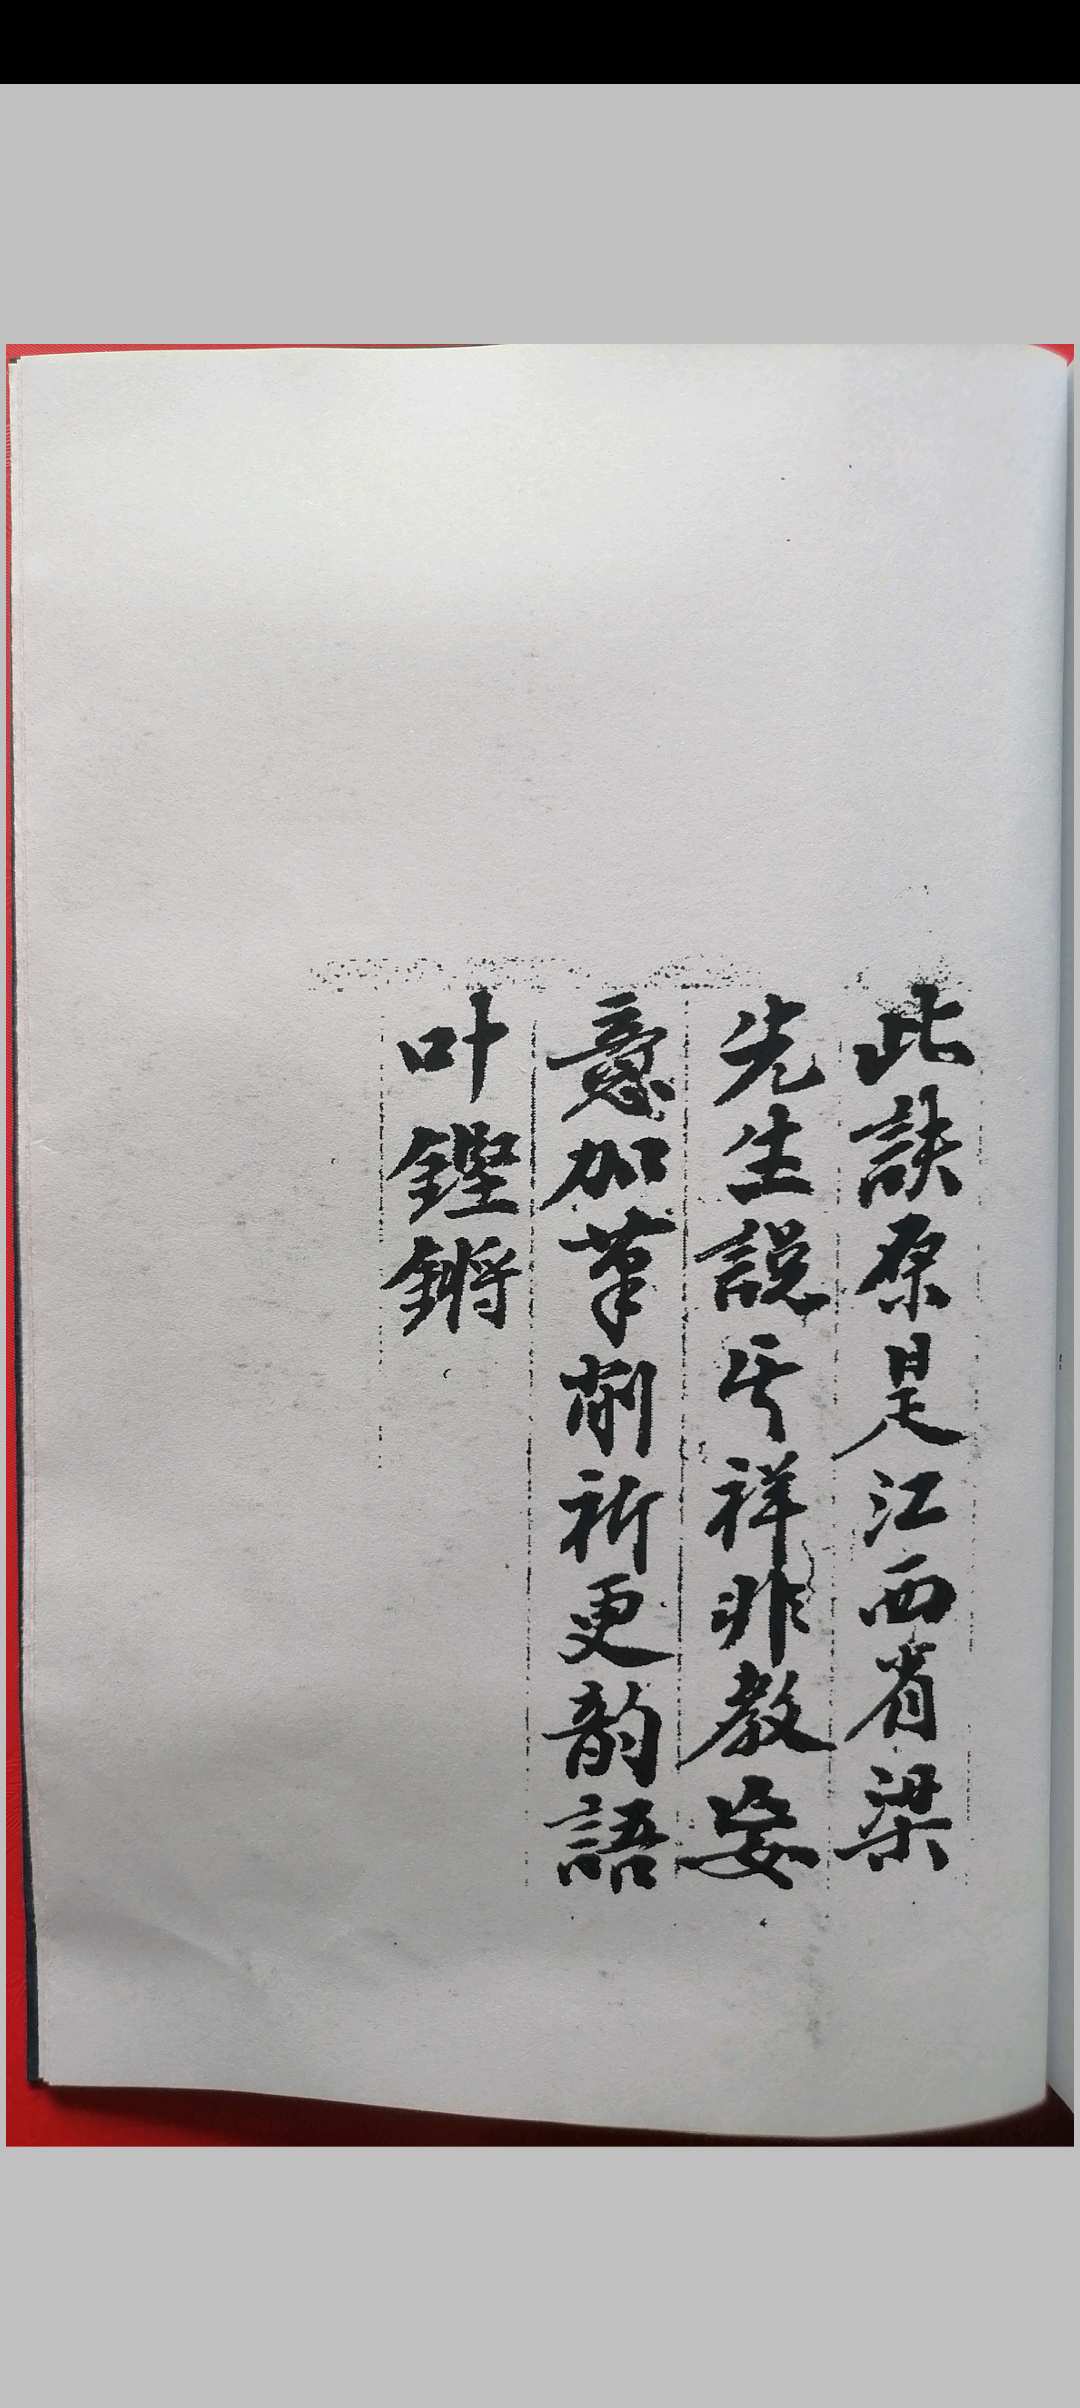 此訣原是江西省梁
先生説于祥非敢妄
意加筆削祈更韵語
叶鏗鏘